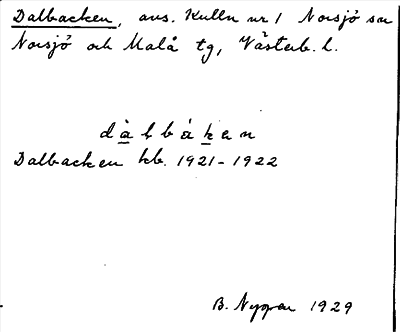 Dalbacken, avs. Kulln nr 1 Norsjö sn
Norsjö och Malå tg, Västerb. l.
dàlbákan
Dalbacken kb. 1921-1922
B. 1929